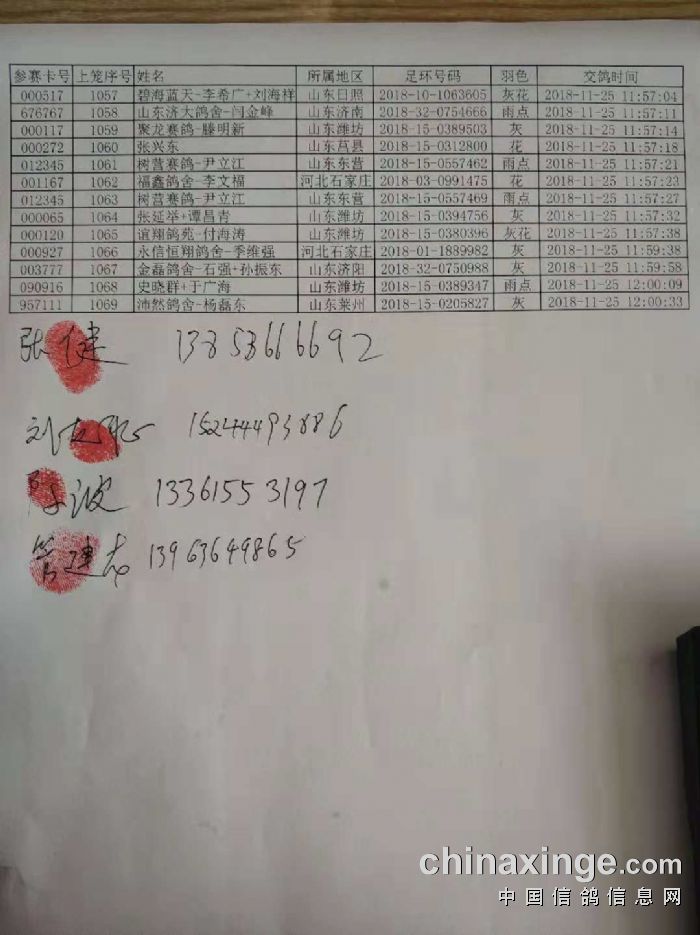 参赛卡号 上笼序号 姓名 所属地区 足环号码 羽色 交鸽时间
000517 1057 碧海蓝天-李希广+刘海祥 山东日照 2018-10-1063605 灰花 2018-11-25 11:57:04
676767 1058 山东济大鸽舍-闫金峰 山东济南 2018-32-0754666 雨点 2018-11-25 11:57:11
000117 1059 聚龙赛鸽-滕明新 山东潍坊 2018-15-0389503 灰 2018-11-25 11:57:14
000272 1060 张兴东 山东莒县 2018-15-0312800 花 2018-11-25 11:57:18
012345 1061 树营赛鸽-尹立江 山东东营 2018-15-0557462 雨点 2018-11-25 11:57:21
001167 1062 福鑫鸽舍-李文福 河北石家庄 2018-03-0991475 花 2018-11-25 11:57:23
012345 1063 树营赛鸽-尹立江 山东东营 2018-15-0557469 雨点 2018-11-25 11:57:27
000065 1064 张延举+谭昌青 山东潍坊 2018-15-0394756 灰 2018-11-25 11:57:32
000120 1065 谊翔鸽苑-付海涛 山东潍坊 2018-15-0380396 灰花 2018-11-25 11:57:38
000927 1066 永信恒翔鸽舍-季维强 河北石家庄 2018-01-1889982 灰 2018-11-25 11:59:38
003777 1067 金磊鸽舍-石强+孙振东 山东济阳 2018-32-0750988 灰 2018-11-25 11:59:58
090916 1068 史晓群+于广海 山东潍坊 2018-15-0389347 雨点 2018-11-25 12:00:09
957111 1069 沛然鸽舍-杨磊东 山东莱州 2018-15-0205827 灰 2018-11-25 12:00:33
张健 13853666692
刘 15244493886
陈波 13361553197
管建志 13963649865
chinaxinge.com
中国信鸽信息网